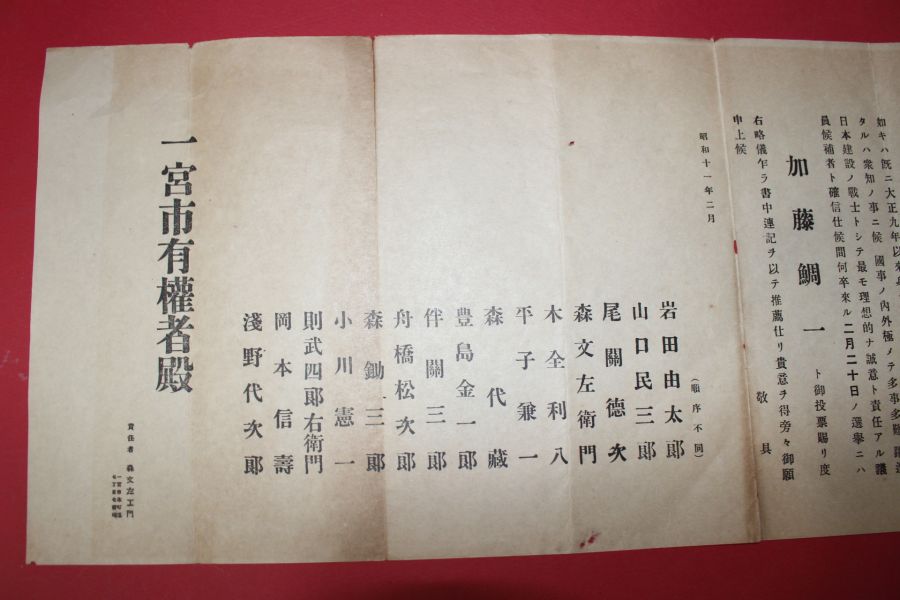 如キハ既ニ大正九年以来
タルハ衆知ノ事ニ候 國事ノ內外極メテ多事多難
日本建設ノ戰士トシテ最モ理想的ナ誠意ト責任アル議
員候補者ト確信仕候間何卒來ル二月二十日ノ選擧ニハ
加藤鯛一 ト御投票賜リ度
右略儀乍ラ書中連記ヲ以テ推薦仕リ貴意ヲ得旁々御願
申上候 敬具
昭和十一年二月
(順序不同)
岩田由太郞
山口民三郞
尾關德次
森文左衞門
木全利八
平子兼一
森代藏
豊島金一郞
伴關三郞
舟橋松次郞
森鋤三郞
小川憲一
則武四郞右衞門
岡本信壽
淺野代次郞
一宮市有權者殿
責任者 森文左エ門